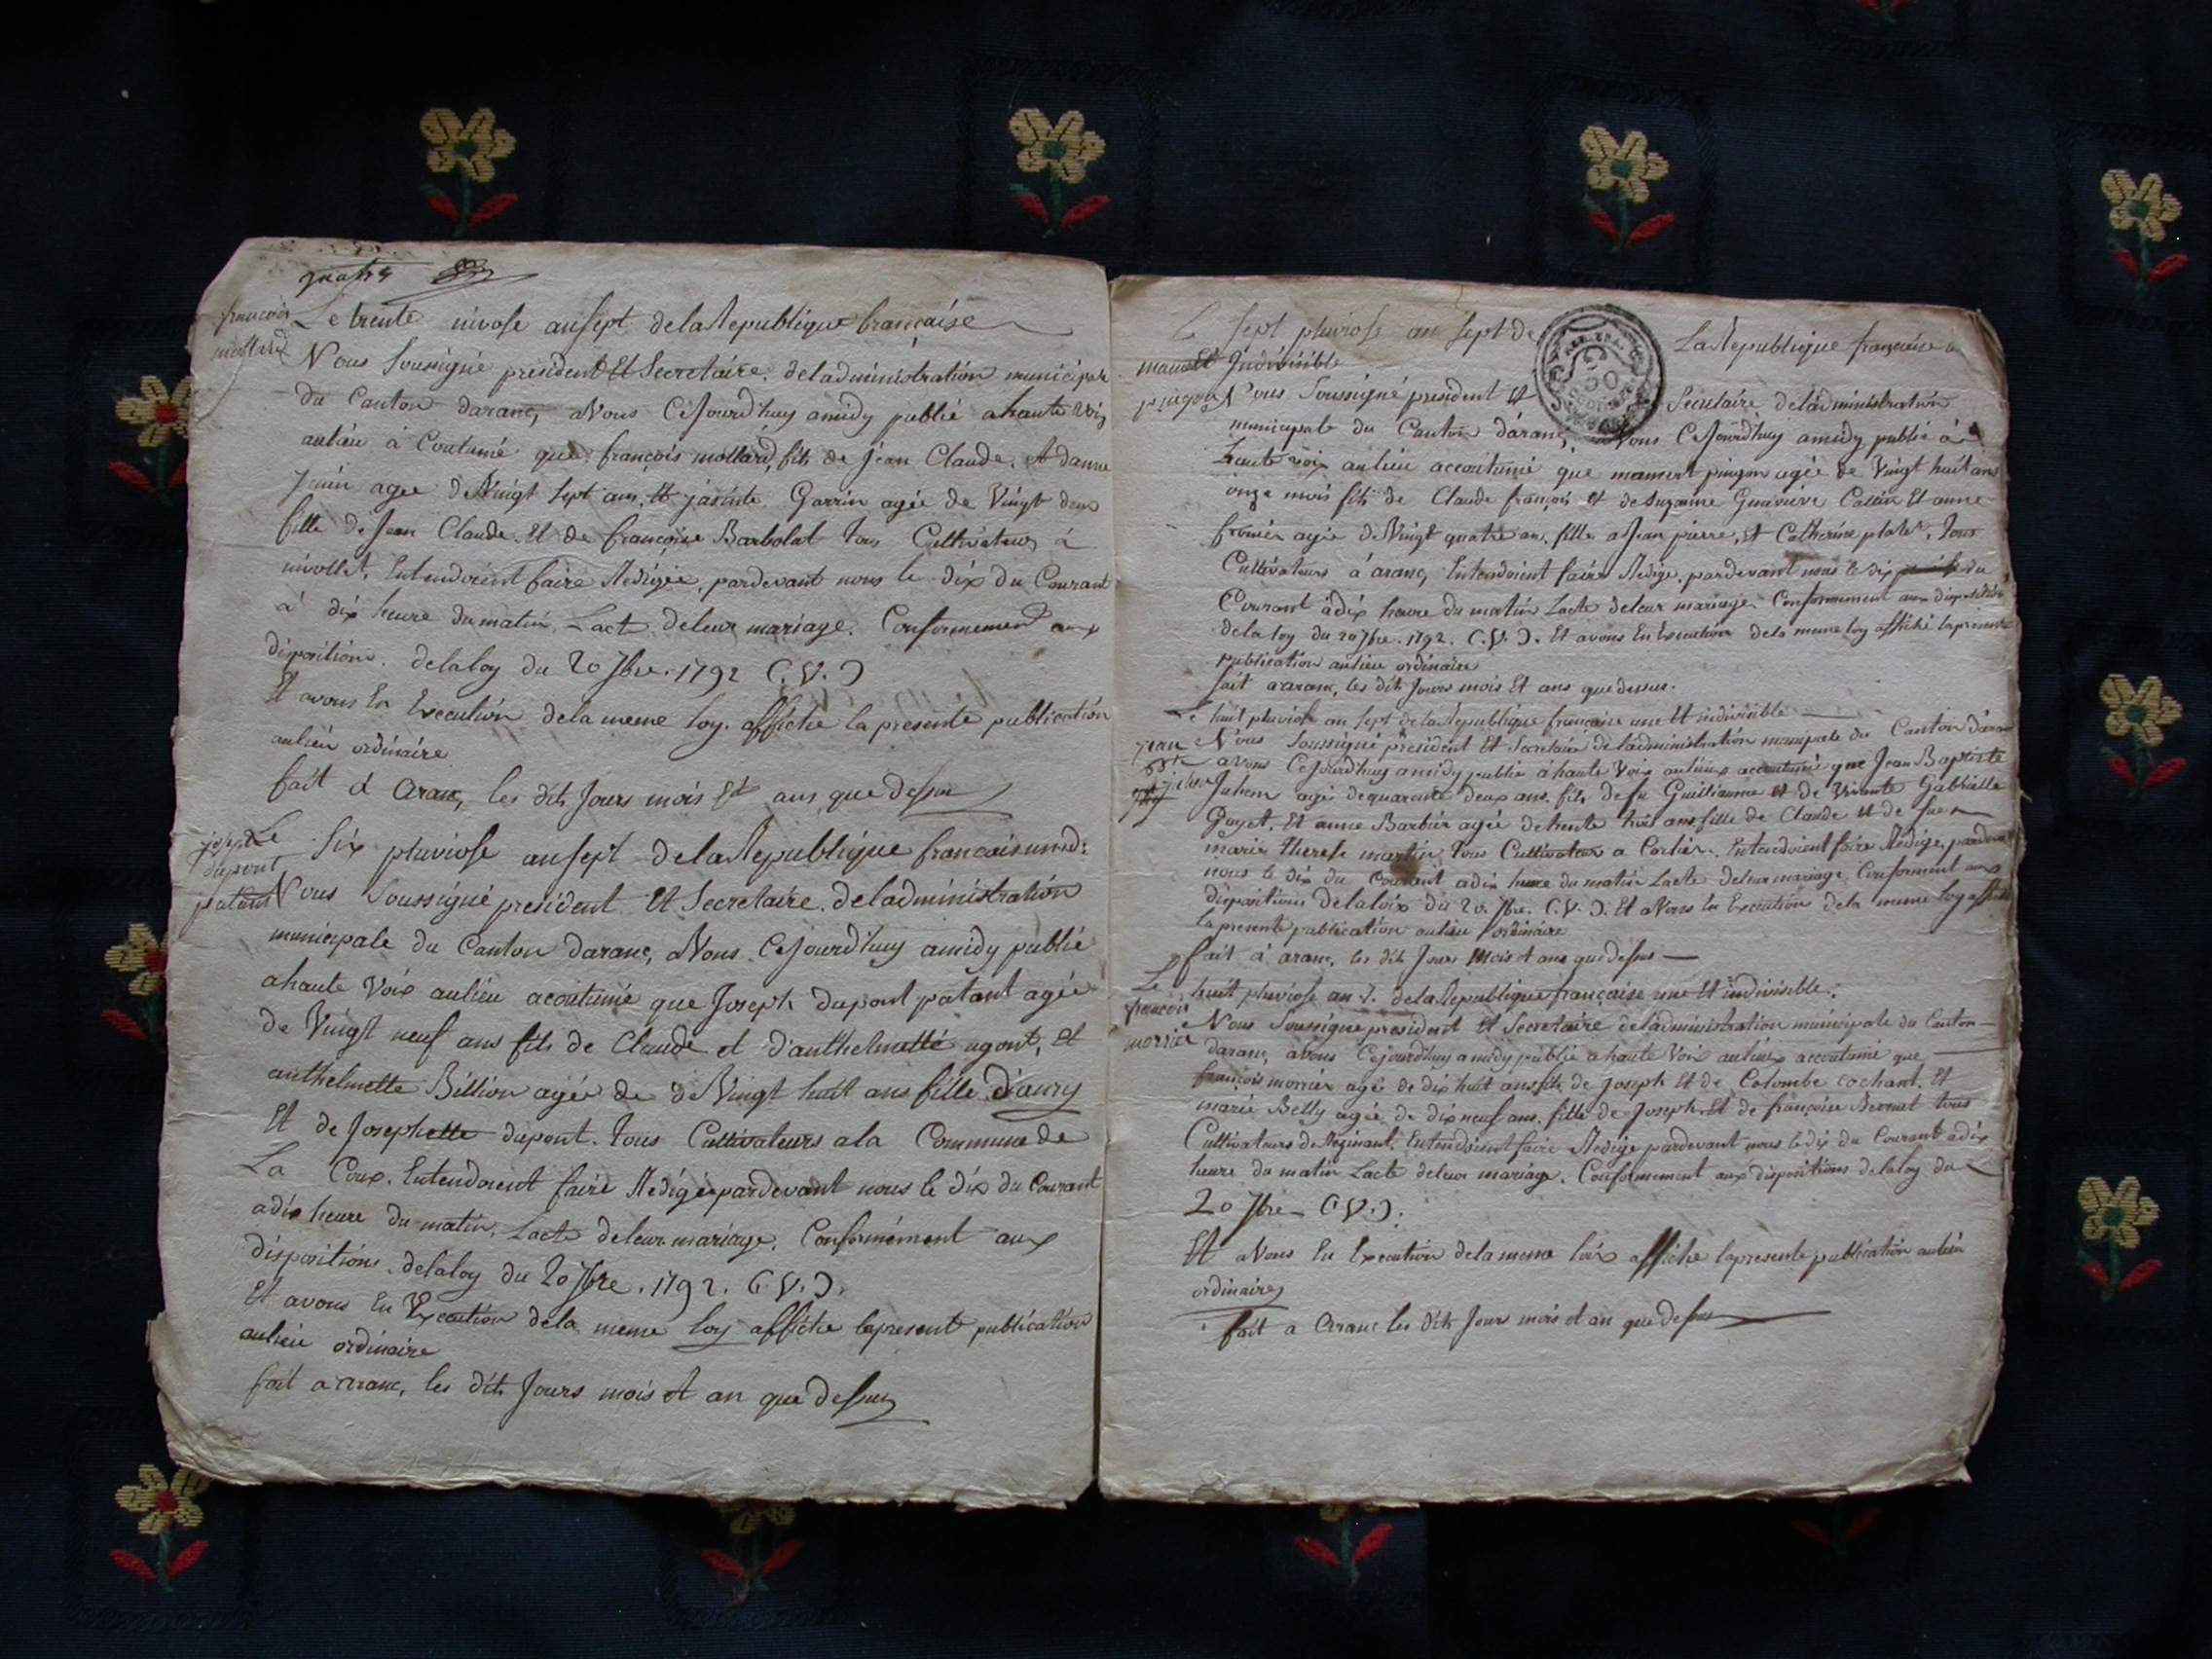 quatre
françois
mollard
Le trente nivose an sept de la Republique française
Nous Soussigné president Et Secretaire de ladministration municipale
du Canton daranc, avons Cejourdhuy amidy publié ahaute voix
aulieu à Coutumé que françois mollard, fils de jean Claude. Et danne
agee de Vingt Sept ans, Et jacinte Garrin agée de Vingt deux
fille de Jean Claude. Et de françoise Barbolat Tous Cultivateurs à
nivollet, Entendoient faire Redigée, pardevant nous le dix du Courant
à dix heure dumatin Lact deleur mariage. Conformement aux
dispositions delaloy du 20 7bre. 1792 (.V.)
Et avons En Execution dela meme loy. affiche la presente publication
aulieu ordinaire
fait à aranc, les dits Jours mois Et ans que dessus
joseph
dupont
patant
Le Six pluviose ansept dela Republique francaise un. id:
Nous Soussigné president Et Secretaire deladministration
municipale du Canton daranc, avons Cejourdhuy amidy publié
ahaute Voix aulieu acoutumé que Joseph dupont patant agée
de Vingt neuf ans fils de Claude et d'anthelmette ugont, Et
anthelmette Billion agée de de Vingt huit ans fille d'aury
Et de Josephette dupont. Tous Cultivateurs ala Commune de
La Coux. Entendoient faire Redigée pardevant nous le dix du Courant
adix heure du matin, Lacte deleur mariage. Conformément aux
dispositions delaloy du 20 7bre. 1792. (.V.).
Et avons En Execution dela meme loy affiche lapresent publication
aulieu ordinaire
fait a aranc, les dits Jours mois Et an que dessus
Le Sept pluviose an Sept de La Republique française
Et Indivisible
mamert
pingon
Nous Soussigné president Et Secretaire deladministration
municipale du Canton daranc, avons Cejourdhuy amidy publié à
haute voix aulieu accoutumé que mamert pingon agée de Vingt huit ans
onze mois fils de Claude françois Et de Suzanne Genevieve Et anne
agée de Vingt quatre ans, fille a Jean pierre, Et Catherine Tous
Cultivateurs à aranc, Entendoient faire Redige, pardevant nous le dix du
Courant àdix heure du matin Lacte deleur mariage. Conformement aux dispositions
dela loy du 20 7bre. 1792. (.V.). Et avons En Execution dela meme loy affiché lapresente
publication aulieu ordinaire
fait aaranc, les dits Jours mois Et ans que dessus.
Le huit pluviose an Sept dela Republique francaise une Et indivisible
jean
bte
juhem
Nous Soussigné president Et Secretaire deladministration municipale du Canton daranc
avons Cejourdhuy amidy publié àhaute Voix aulieux accoutumé que Jean Baptiste
Juhem agée dequarante deux ans. fils defu Guillaume Et de Gabrielle
Goyet. Et anne Barbier agée detrente trois ans fille de Claude Et de fue
marie therese martin Tous Cultivateur a Corlier. Entendoient faire Redige, pardevant
nous le dix du Courant adix heure du matin Lacte deleur mariage, Conforment aux
dispositions delaloix du 20. 7bre. (.V.). Et avons En Execution dela meme loy affiché
lapresente publication aulieu ordinaire
fait à aranc, les dits Jours mois Et ans que dessus
Le huit pluviose an 7. dela Republique française une Et indivisible.
françois
morrier
Nous Soussigne president Et Secretaire deladministration municipale du Canton
daranc, avons Cejourdhuy amidy publié ahaute Voix aulieux accoutumé que
françois morrier agée de dix huit ans fils de Joseph Et de Colombe cochant. Et
marie Belly agée de dix neuf ans. fille de Joseph. Et de françoise Bernet tous
Cultivateurs de Reginant. Entendoient faire Redige pardevant nous le dix du Courant adix
heure du matin Lacte deleur mariage. Conformement aux dispositions delaloy du
20 7bre (.V.).
Et avons En Execution dela meme loix affiche lapresente publication aulieu
ordinaire
fait a aranc les dits Jours mois et an que dessus